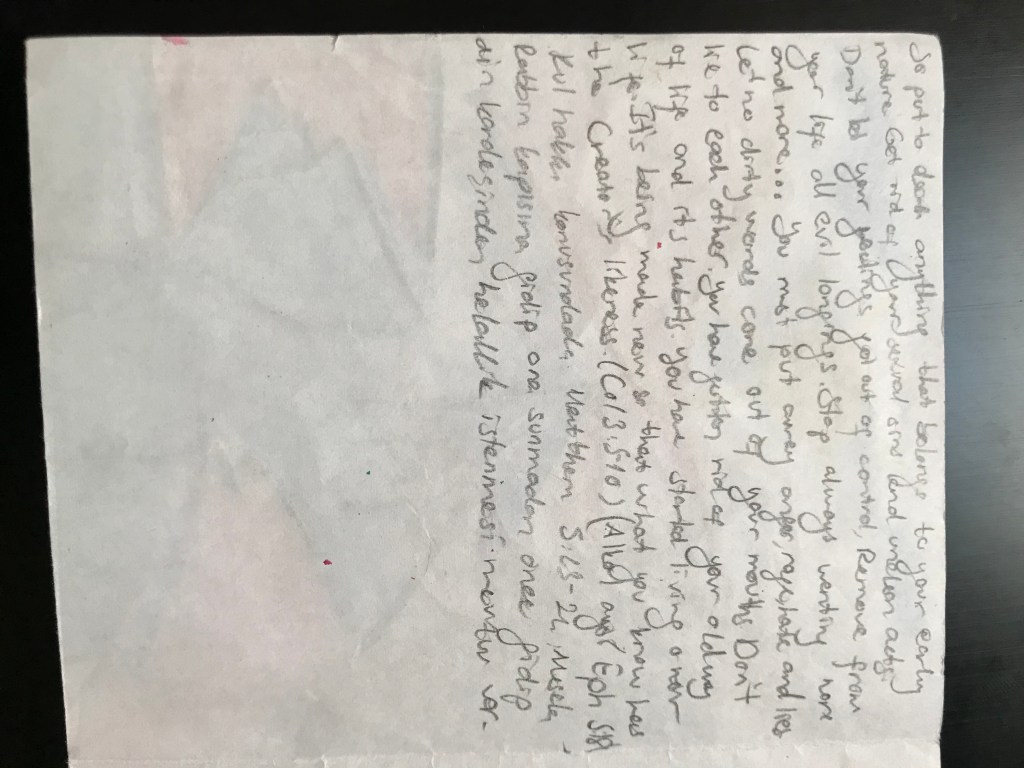 So put to death anything that belongs to your early
nature Get rid of your sexual sins and unclean acts.
Don't let your feelings get out of control, Remove from
your life all evil longings. Stop always wanting more
and more... You must put away anger, rage, hate and lies
Let no dirty words come out of your mouths Don't
lie to each other. You have gotten rid of your old way
of life and its habits. You have started living a new
life. It's being made new so that what you know has
the Creator's likeness. (Col 3.5-10) Eph
Kul hakkı konusundada, Matthew 5:23-24, Mesela,
Rabbin kapısına gidip ona sunmadan önce gidip
din kardeşinden helallik istenmesi